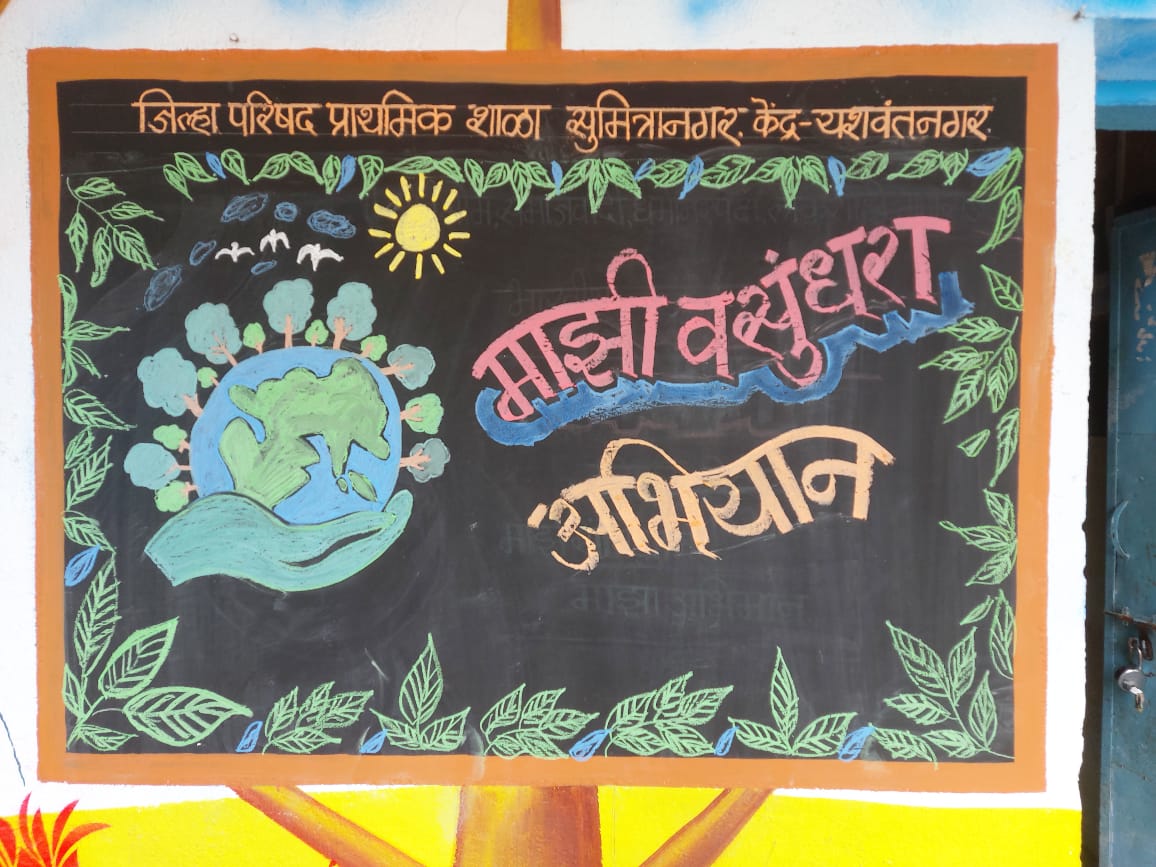 जिल्हा परिषद प्राथमिक शाळा सुमित्रानगर. केंद्र-यशवंतनगर.
माझी वसुंधरा
अभियान